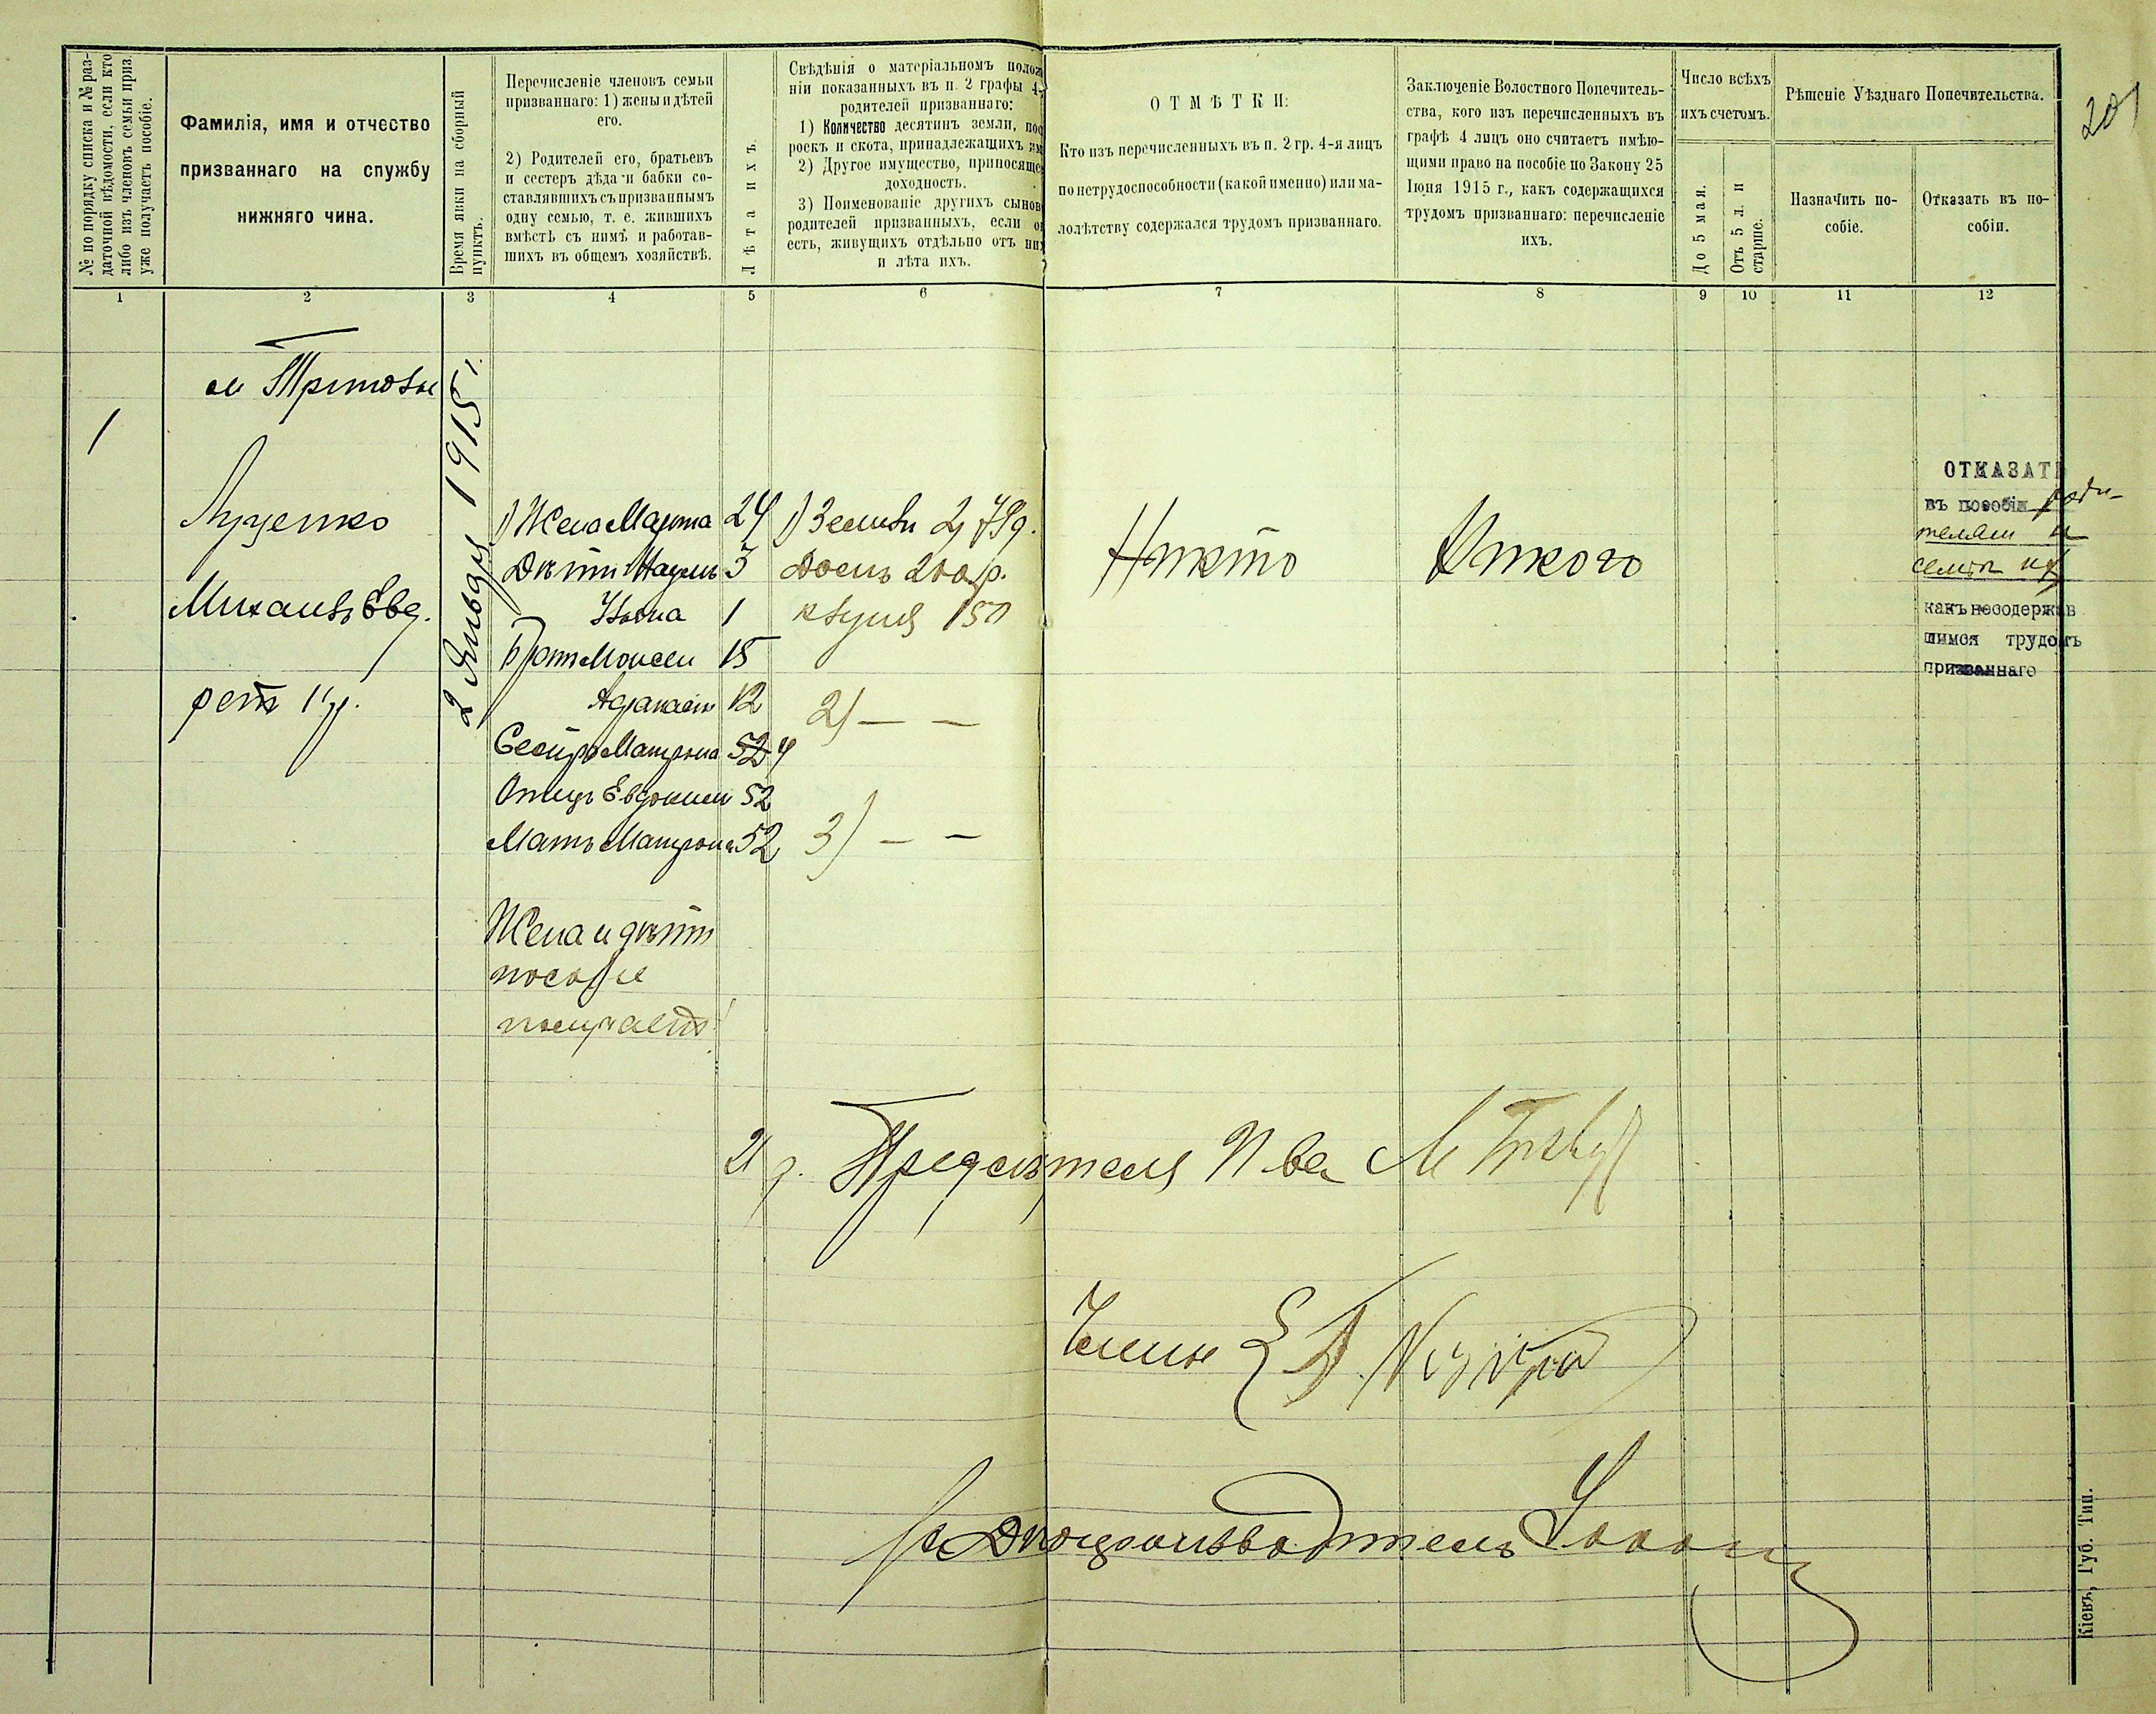 201
№ по порядку списка и № раз-
даточной вѣдомости, если кто
либо изъ членовъ семьи приз.
уже получаетъ пособіе.
Фамилія, имя и отчество
призваннаго на службу
нижняго чина.
Время явки на сборный
пунктъ.
Перечисленіе членовъ семьи
призваннаго: 1) жены и дѣтей
его.
2) Родителей его, братьевъ
и сестеръ дѣда и бабки со-
ставлявшихъ съ призваннымъ
одну семью, т. е. жившихъ
вмѣстѣ съ нимъ и работав-
шихъ въ общемъ хозяйствѣ.
Лѣта ихъ.
Свѣдѣнія о матеріальномъ полож
ніи показанныхъ въ п. 2 графы 4-
родителей призваннаго:
1) Количество десятинъ земли, пос
роекъ и скота, принадлежащихъ им
2) Другое имущество, приносяще
доходность.
3) Поименованіе другихъ сынов
родителей призванныхъ, если о
есть, живущихъ отдѣльно отъ них
и лѣта ихъ.
ОТМѢТКИ:
Кто изъ перечисленныхъ въ п. 2 гр. 4-я лицъ
по нетрудоспособности (какой именно) или ма-
лолѣтству содержался трудомъ призваннаго.
Заключеніе Волостного Попечитель-
ства, кого изъ перечисленныхъ въ
графѣ 4 лицъ оно считаетъ имѣю-
щими право на пособіе по Закону 25
Іюня 1915 г., какъ содержащихся
трудомъ призваннаго: перечисленіе
ихъ.
Число всѣхъ
ихъ счетомъ.
До 5 мая.
Отъ 5 л. и
старше.
Рѣшеніе Уѣзднаго Попечительства.
Назначить по-
собіе.
Отказать въ по-
собіи.
1 2 3 4 5 6 7 8 9 10 11 12
1
Луценко
Михаилъ Евд.
рат. 1 р.
2 Января 1915 г.
1) Жена Марта 24
Дѣти 3
1
Братъ Моисей 15
Афанасій 12
Сестра Матрона 52 4
Отецъ Евдоким 52
Мать Матрона 52
Жена и дѣти
пособіе
получаетъ
1) Земли 2, 79 д.
Домъ 200 р.
клуня 150
2) — —
3) — —
Никто
Никого
ОТКАЗАТЬ
въ пособіи роди-
телям и
семьи их
какъ несодержав
шимся трудомъ
призваннаго
И д. Председателя П-ва М
Члены
Дѣлопроизводитель
Кіевъ, Губ. Тип.